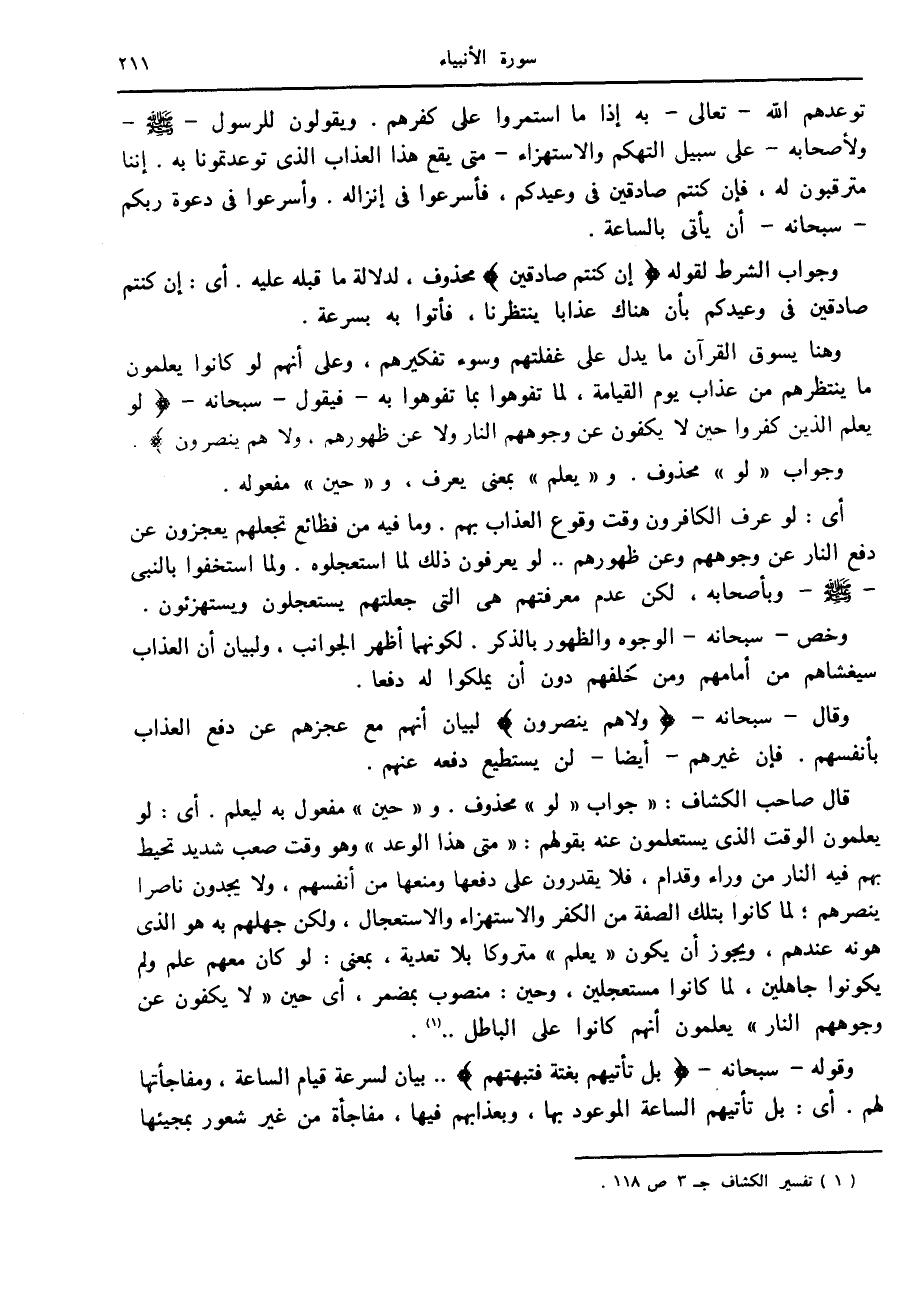 سورة الأنبياء ٢١١
توعدهم الله – تعالى – به إذا ما استمروا على كفرهم . ويقولون للرسول – ﷺ –
ولأصحابه – على سبيل التهكم والاستهزاء – متى يقع هذا العذاب الذى توعدتمونا به . إننا
مترقبون له ، فإن كنتم صادقين فى وعيدكم ، فأسرعوا فى إنزاله . وأسرعوا فى دعوة ربكم
– سبحانه – أن يأتى بالساعة .
وجواب الشرط لقوله ﴿ إن كنتم صادقين ﴾ محذوف ، لدلالة ما قبله عليه . أى : إن كنتم
صادقين فى وعيدكم بأن هناك عذابا ينتظرنا ، فأتوا به بسرعة .
وهنا يسوق القرآن ما يدل على غفلتهم وسوء تفكيرهم ، وعلى أنهم لو كانوا يعلمون
ما ينتظرهم من عذاب يوم القيامة ، لما تفوهوا بما تفوهوا به – فيقول – سبحانه – ﴿ لو
يعلم الذين كفروا حين لا يكفون عن وجوههم النار ولا عن ظهورهم ، ولا هم ينصرون ﴾ .
وجواب « لو » محذوف . و « يعلم » بمعنى يعرف ، و « حين » مفعوله .
أى : لو عرف الكافرون وقت وقوع العذاب بهم . وما فيه من فظائع تجعلهم يعجزون عن
دفع النار عن وجوههم وعن ظهورهم .. لو يعرفون ذلك لما استعجلوه . ولما استخفوا بالنبى
– ﷺ – وبأصحابه ، لكن عدم معرفتهم هى التى جعلتهم يستعجلون ويستهزئون .
وخص – سبحانه – الوجوه والظهور بالذكر . لكونهما أظهر الجوانب ، ولبيان أن العذاب
سيغشاهم من أمامهم ومن خلفهم دون أن يملكوا له دفعا .
وقال – سبحانه – ﴿ ولاهم ينصرون ﴾ لبيان أنهم مع عجزهم عن دفع العذاب
بأنفسهم . فإن غيرهم – أيضا – لن يستطيع دفعه عنهم .
قال صاحب الكشاف : « جواب « لو » محذوف . و « حين » مفعول به ليعلم . أى : لو
يعلمون الوقت الذى يستعلمون عنه بقولهم : « متى هذا الوعد » وهو وقت صعب شديد تحيط
بهم فيه النار من وراء وقدام ، فلا يقدرون على دفعها ومنعها من أنفسهم ، ولا يجدون ناصرا
ينصرهم ؛ لما كانوا بتلك الصفة من الكفر والاستهزاء والاستعجال ، ولكن جهلهم به هو الذى
هونه عندهم ، ويجوز أن يكون « يعلم » متروكا بلا تعدية ، بمعنى : لو كان معهم علم ولم
يكونوا جاهلين ، لما كانوا مستعجلين ، وحين : منصوب بمضمر ، أى حين « لا يكفون عن
وجوههم النار » يعلمون أنهم كانوا على الباطل ..(١) .
وقوله – سبحانه – ﴿ بل تأتيهم بغتة فتبهتهم ﴾ .. بيان لسرعة قيام الساعة ، ومفاجأتها
لهم . أى : بل تأتيهم الساعة الموعود بها ، وبعذابهم فيها ، مفاجأة من غير شعور بمجيئها
( ١ ) تفسير الكشاف جـ ٣ ص ١١٨ .